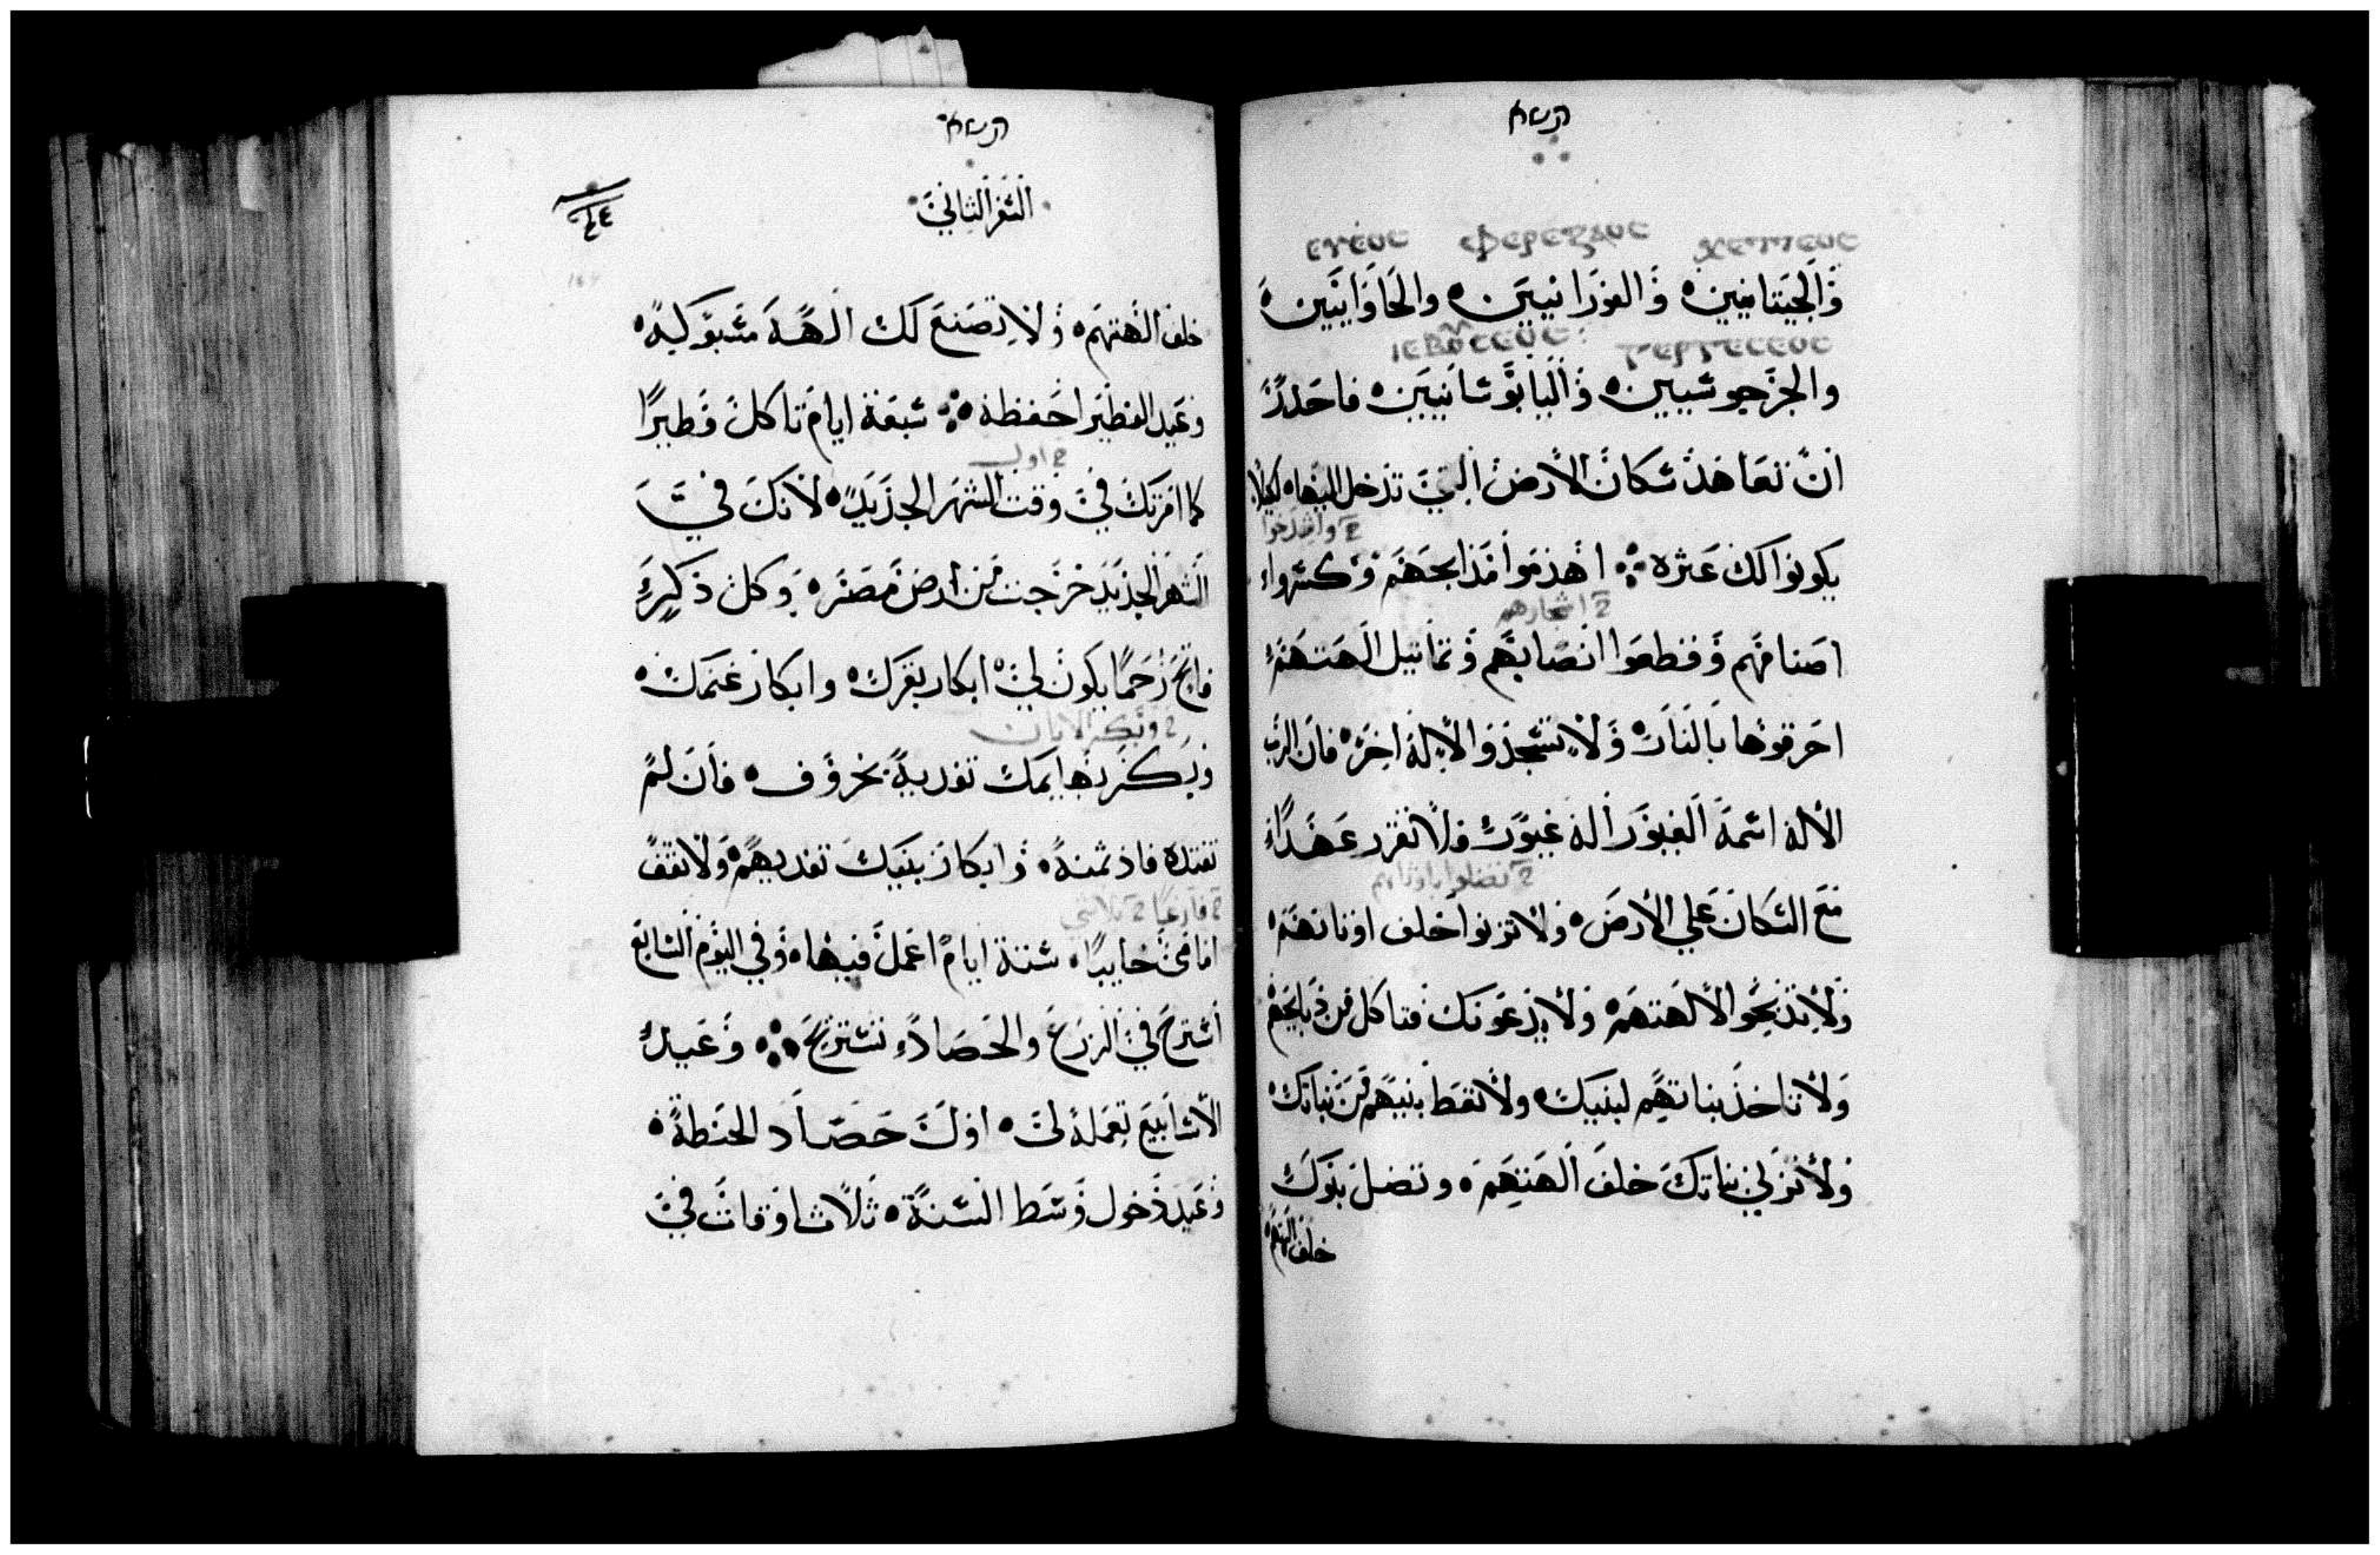 כי תשא
χεττεος φερεζεος ευεος
وَالجيتانيين ۰ وَالفرزانيين ۰ والحَاوَانيّين ۰
γεργεσεος ιεβουσεος
والجرجوشيين ۰ وَاليَابوُسَانيين ۰ فاحَدرْ
ان تعَاهَد سكان الارض التِي تدخل اليهَا ۰ ليلا
يكونوا لك عَثره ۰ اهدمَوا مَذابحَهم وَكسروا
ح اشجارهم
اصنامهم وَقطعَوا انصَابهم وَتماثيل الهَتهَم
احَرقوهَا بَالنَار ۰ وَلَا تسْجدوَا لالِه اخرَ ۰ فان الرب
الاله اسمهَ الغيوَر الهَ غيوَر ۰ فلا تقرر عَهَدًا
مَع السَكان عَلي الارضَ ۰ وَلا تزنوا خلف اوثانهمَ
وَلَا تذبحَوا لالهتهمَ ۰ وَلا يدعَونك فتاكل مَن ذبايحَهم
وَلا تاخذ بناتهَم لبنيك ۰ ولا تعَط بنيهَم مَن بناتك ۰
وَلا تزني بناتكَ خلفَ الهَتهَم ۰ وتضل بنوكَ
خلف الهتهم
כי תשא
السَفر الثاني
٤٤
خلف الهتهَم ۰ وَلا تصَنعَ لك الهَة مَسبوَكة ۰
وَعَيد الفطير احَفظه ۰ سَبعَة ايام تاكل فَطيرًا
ح اول
كما امَرتكَ في وقت الشهَر الجديَد ۰ لانكَ في
الشهر الجديَد خرَجت مَن ارض مَصَر ۰ وَكل ذكر
فاتح رَحَمًا يكون لي ۰ ابكار بقرك ۰ وابكار غنمَك ۰
وَبكر بهَايمَك تفديهَ بخروَف ۰ فان لم
تفتده فاد ثمنهَ ۰ وَابكار بنيكَ تفديهَم ۰ وَلا تقف
ح فارغا
امَامَي خايبًا ۰ ستة ايام اعَمل فيهَا ۰ وَفي اليوَم السَابعَ
اسْترحَ في الزرَعَ والحَصَاد تسْتريحَ ۰ وَعَيد
الاسَابيعَ تعَملهَ لي ۰ اوَل حَصَاد الحَنطة ۰
وَعَيد دخول وَسَط السَنة ۰ ثلاث اوَقات في